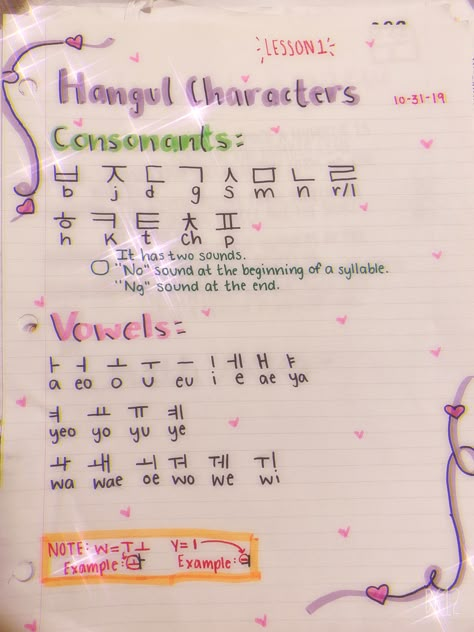 LESSON 1
Hangul Characters
10-31-19
Consonants:
ㅂ ㅈ ㄷ ㄱ ㅅ ㅁ ㄴ ㄹ
b j d g s m n r/l
ㅎ ㅋ ㅌ ㅊ ㅍ
h k t ch p
It has two sounds.
ㅇ "No" sound at the beginning of a syllable.
"Ng" sound at the end.
Vowels:
ㅏ ㅓ ㅗ ㅜ ㅡ ㅣ ㅔ ㅐ ㅑ
a eo o u eu i e ae ya
ㅕ ㅛ ㅠ ㅖ
yeo yo yu ye
ㅘ ㅙ ㅚ ㅝ ㅞ ㅟ
wa wae oe wo we wi
NOTE: W=ㅜㅗ Y=
Example: Example: